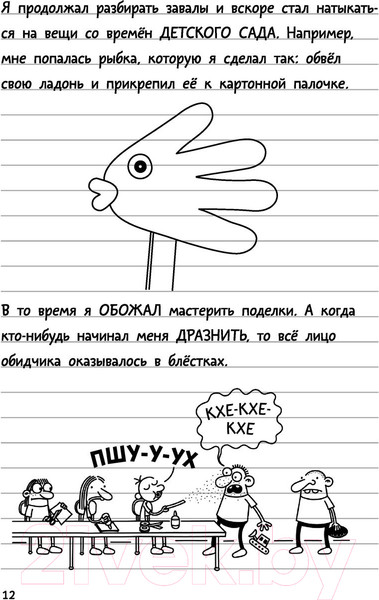 Я продолжал разбирать завалы и вскоре стал натыкать-
ся на вещи со времён ДЕТСКОГО САДА. Например,
мне попалась рыбка, которую я сделал так: обвёл
свою ладонь и прикрепил её к картонной палочке.
В то время я ОБОЖАЛ мастерить поделки. А когда
кто-нибудь начинал меня ДРАЗНИТЬ, то всё лицо
обидчика оказывалось в блёстках.
ПШУ-У-УХ
КХЕ-КХЕ-
КХЕ
12
21vek.by